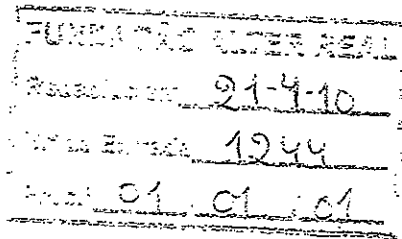 FUNDAÇÃO ALTER REAL
Recebido em 21-4-10
Nº de Entrada 1244
01 . 01 . 01